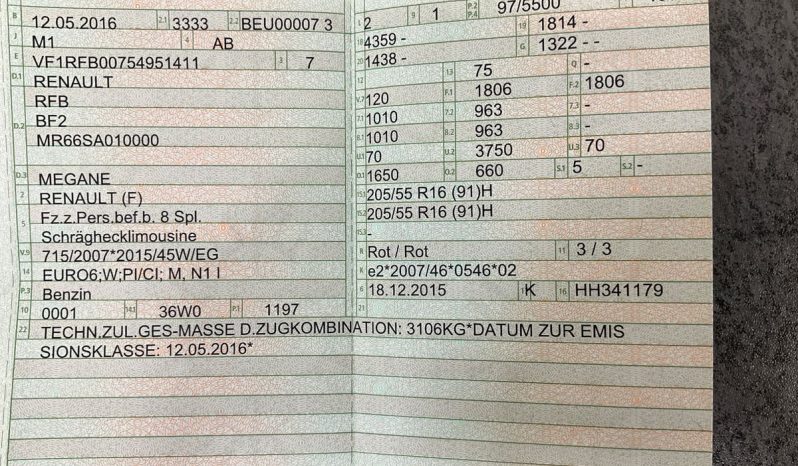 B 12.05.2016 2.1 3333 2.2 BEU00007 3
J M1 4 AB
E VF1RFB00754951411 3 7
D.1 RENAULT
RFB
D.2 BF2
MR66SA010000
D.3 MEGANE
2 RENAULT (F)
5 Fz.z.Pers.bef.b. 8 Spl.
Schräghecklimousine
V.9 715/2007*2015/45W/EG
14 EURO6;W;PI/CI; M, N1 I
P.3 Benzin
10 0001 14.1 36W0 P.1 1197
22 TECHN.ZUL.GES-MASSE D.ZUGKOMBINATION: 3106KG*DATUM ZUR EMIS
SIONSKLASSE: 12.05.2016*
L 2 9 1 P.2 P.4 97/5500
18 4359 - 19 1814 -
20 1438 - G 1322 - -
12 13 75 Q -
V.7 120 F.1 1806 F.2 1806
7.1 1010 7.2 963 7.3 -
8.1 1010 8.2 963 8.3 -
U.1 70 U.2 3750 U.3 70
O.1 1650 O.2 660 S.1 5 S.2 -
15.1 205/55 R16 (91)H
15.2 205/55 R16 (91)H
15.3 -
R Rot / Rot 11 3 / 3
K e2*2007/46*0546*02
6 18.12.2015 K 16 HH341179
21